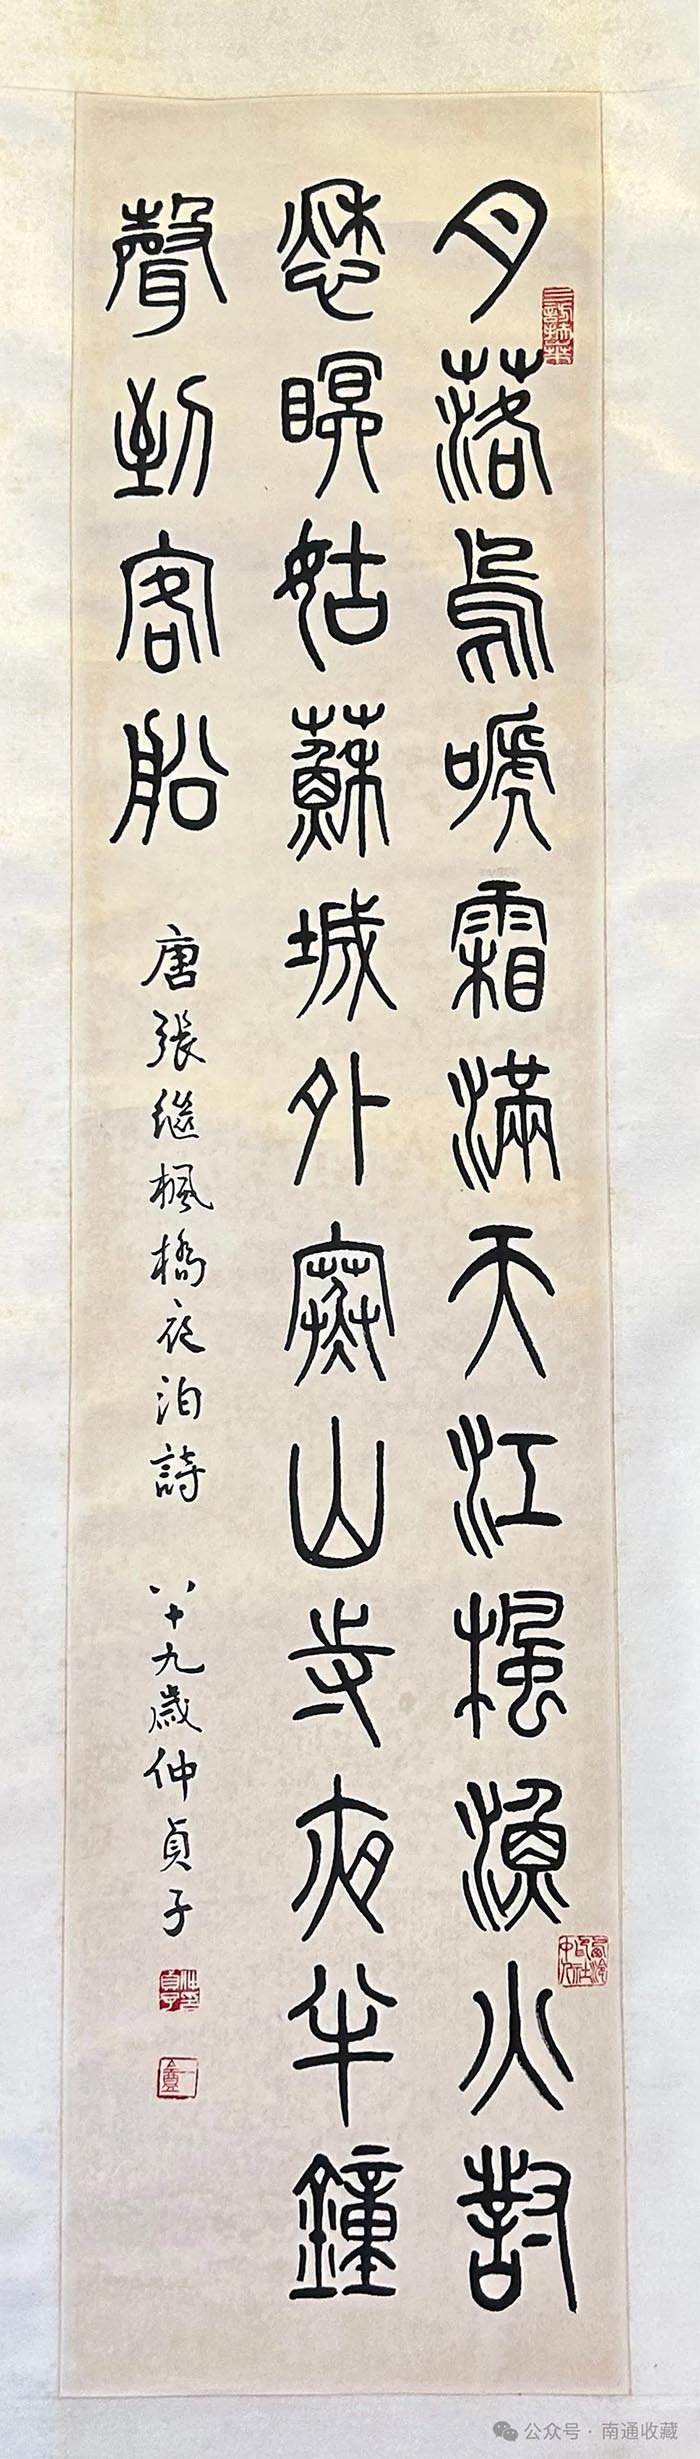 月落烏嗁霜滿天江楓漁火對
愁瞑姑蘇城外寒山寺夜半鐘
聲到客船
唐張繼楓橋夜泊詩 八十九歲仲貞子
三訪扶桑
西泠印社中人
公众号·南通收藏